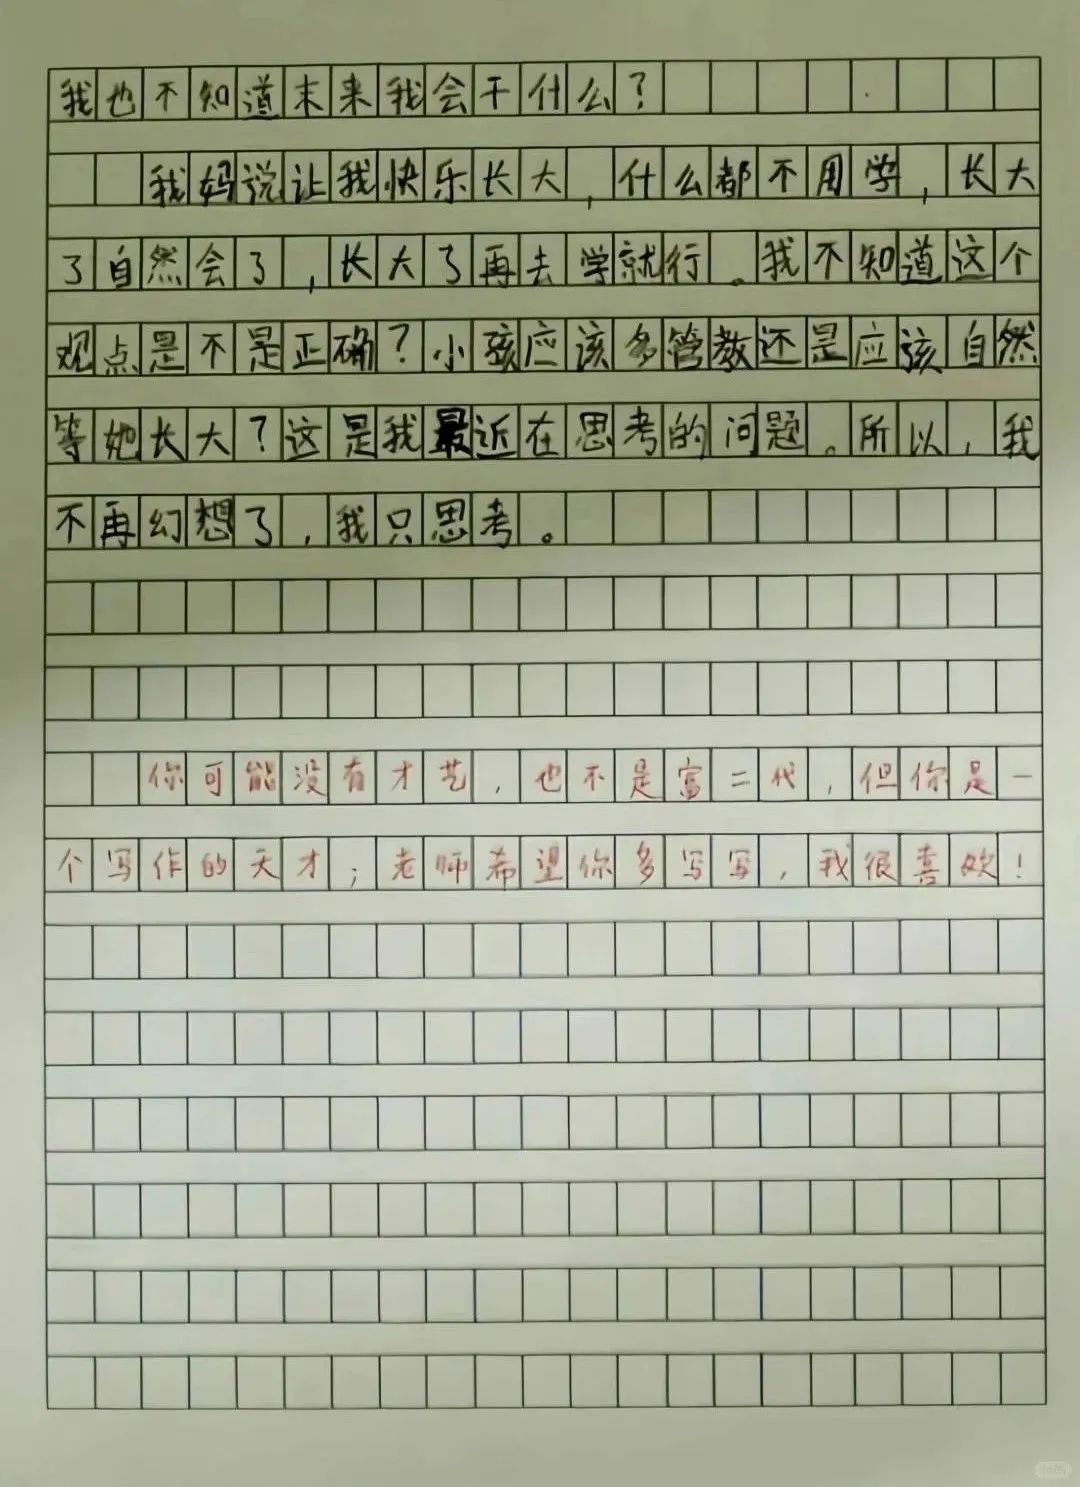 我也不知道未来我会干什么？
我妈说让我快乐长大，什么都不用学，长大
了自然会了，长大了再去学就行。我不知道这个
观点是不是正确？小孩应该多管教还是应该自然
等她长大？这是我最近在思考的问题。所以，我
不再幻想了，我只思考。
你可能没有才艺，也不是富二代，但你是一
个写作的天才；老师希望你多写写，我很喜欢！